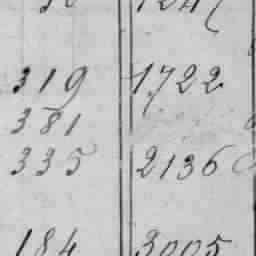 319 1722
381
335 2136
184 3005